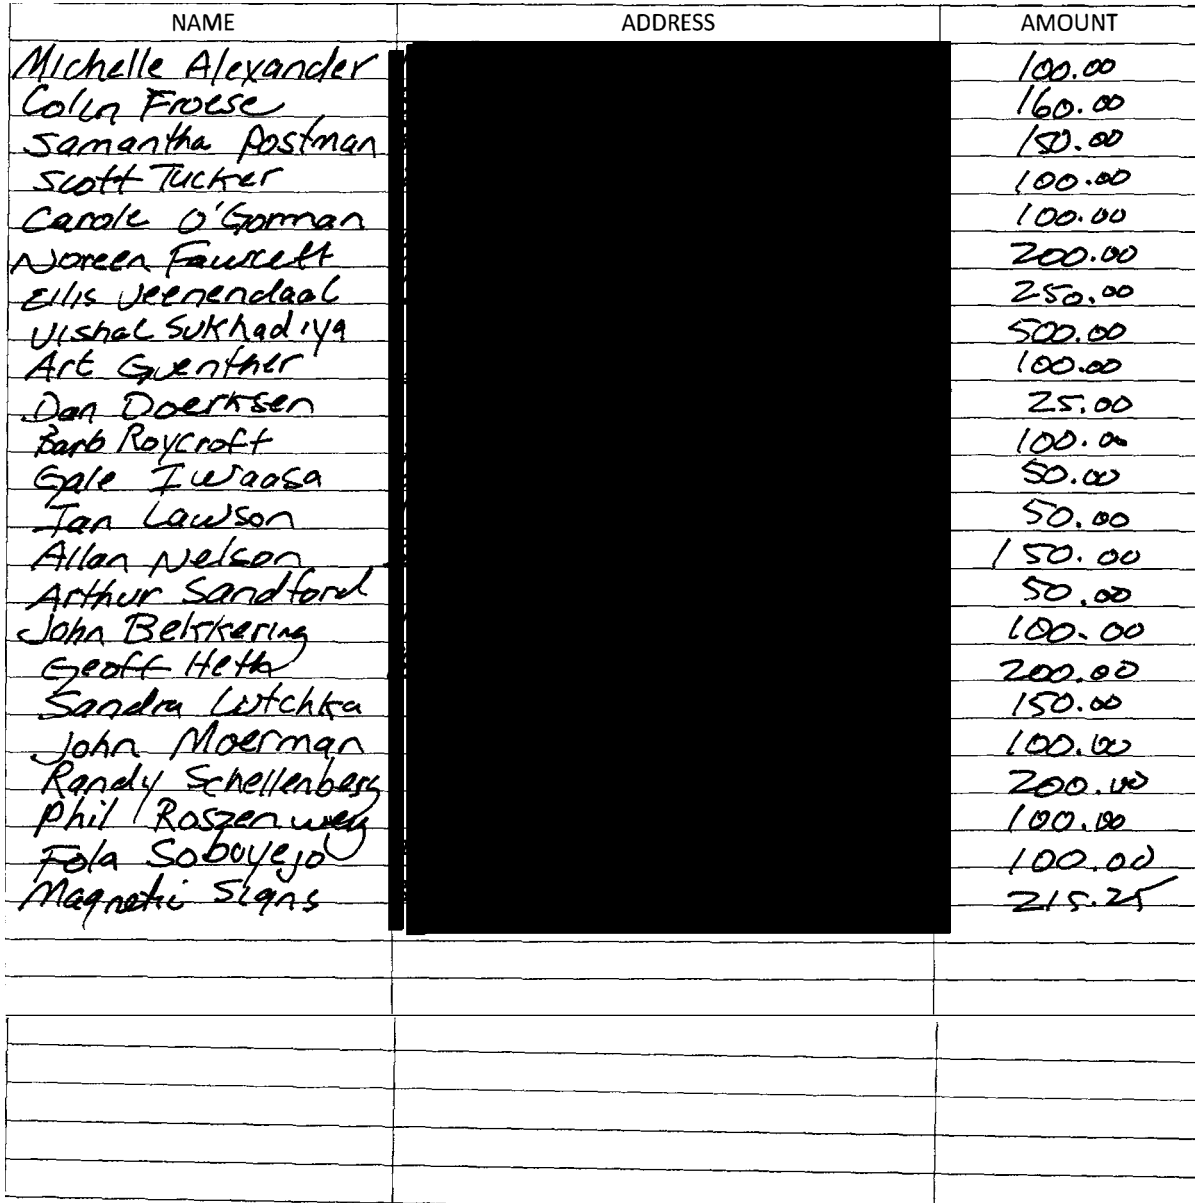 NAME ADDRESS AMOUNT
Michelle Alexander 100.00
Colin Froese 160.00
Samantha Postman 150.00
Scott Tucker 100.00
Carole O'Gorman 100.00
Noreen Fawcett 200.00
Eilis Veenendaal 250.00
Vishal Sukhadiya 500.00
Art Guenther 100.00
Dan Doerksen 25.00
Barb Roycroft 100.00
Gale Iwaasa 50.00
Ian Lawson 50.00
Allan Nelson 150.00
Arthur Sandford 50.00
John Bekkering 100.00
Geoff Heth 200.00
Sandra Lutchka 150.00
John Moerman 100.00
Randy Schellenberg 200.00
Phil Roszenweig 100.00
Fola Soboyejo 100.00
Magnetic Signs 215.25